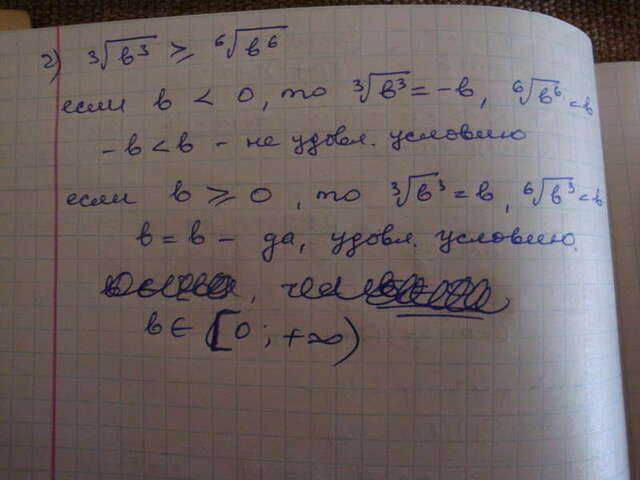 2) ³√b³ ≥ ⁶√b⁶
если b < 0, то ³√b³ = -b, ⁶√b⁶ = b
-b < b - не удовл. условию
если b ≥ 0, то ³√b³ = b, ⁶√b³ = b
b = b - да, удовл. условию.
b ∈ [0; +∞)